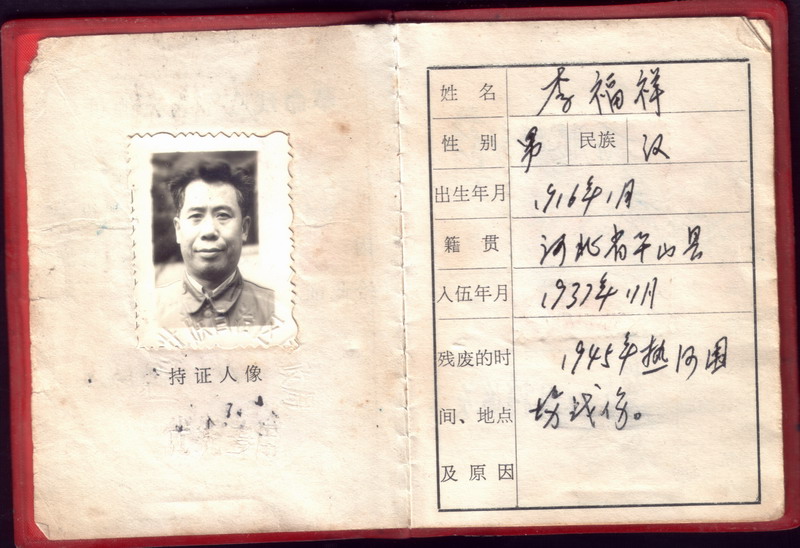 持证人像
姓名 李福祥
性别 男 民族 汉
出生年月 1916年1月
籍贯 河北省平山县
入伍年月 1937年11月
残废的时 1945年热河围
间、地点 场战伤。
及原因